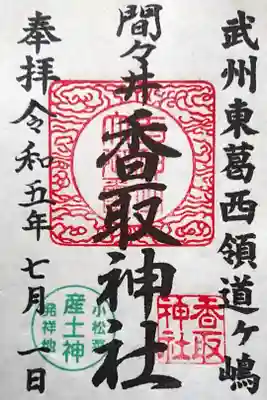 武州東葛西領道ヶ嶋
間々井
香取神社
奉拝 令和五年 七月 一日
香取
神社
小松菜
産土神
発祥地